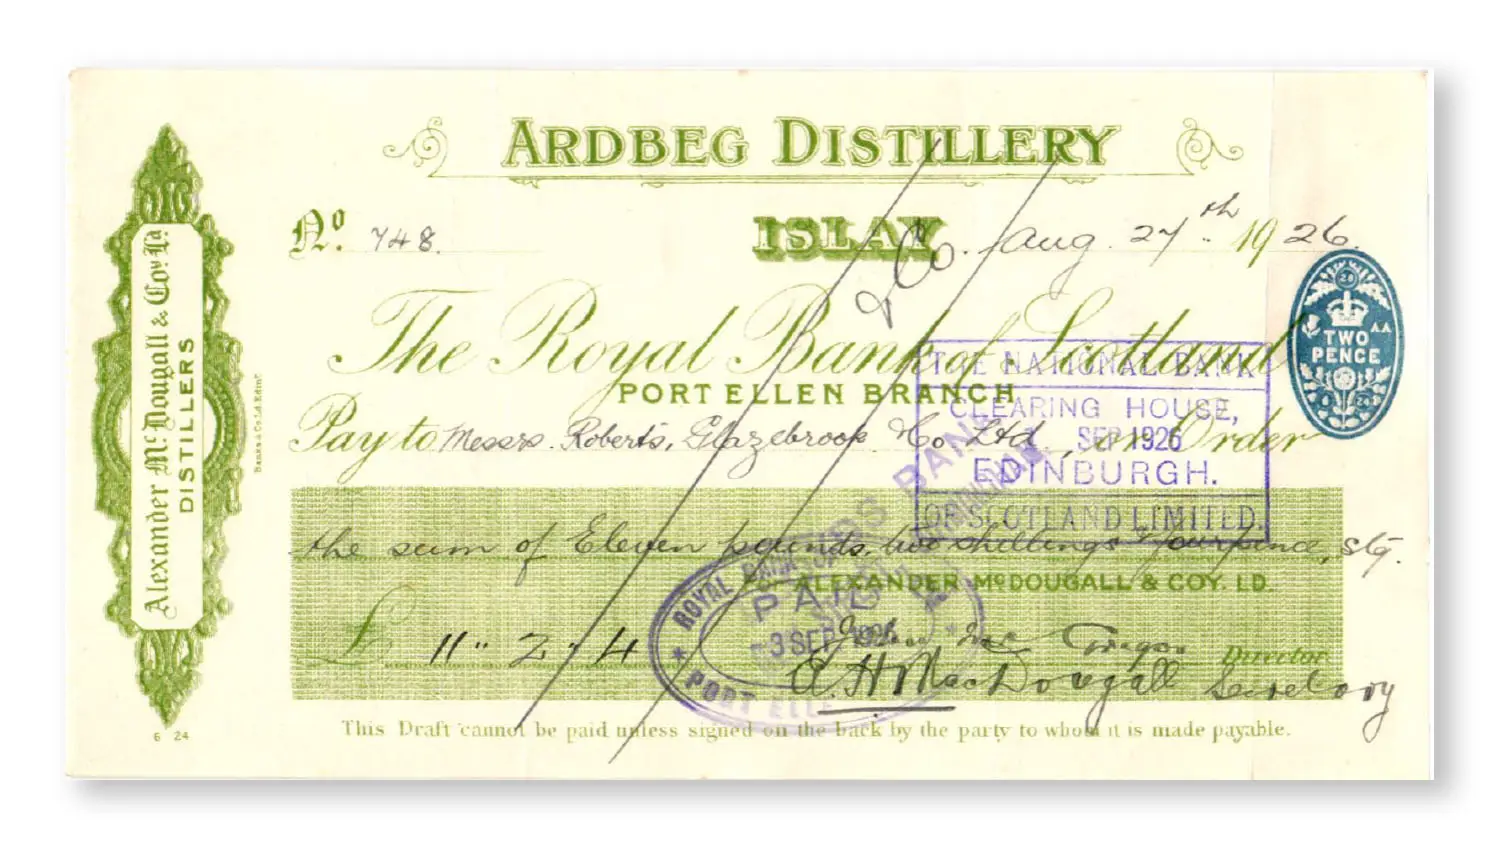 ARDBEG DISTILLERY
ISLAY
No. 748.
Aug. 27th 1926.
& Co.
The Royal Bank of Scotland
PORT ELLEN BRANCH
Pay to Messrs. Roberts, Glazebrook & Co Ltd, or Order
the sum of Eleven pounds two shillings & fourpence, stg.
ALEXANDER McDOUGALL & COY. LD.
£ 11 " 2 " 4
John Director
A. H. MacDougall Secretary
This Draft cannot be paid unless signed on the back by the party to whom it is made payable.
Alexander McDougall & Coy. Ld.
DISTILLERS
6 24
TWO
PENCE
AA
THE NATIONAL BANK
CLEARING HOUSE,
SEP 1926
EDINBURGH.
OF SCOTLAND LIMITED.
ROYAL BANK OF
PAID
3 SEP 1926
PORT ELLEN
BANK